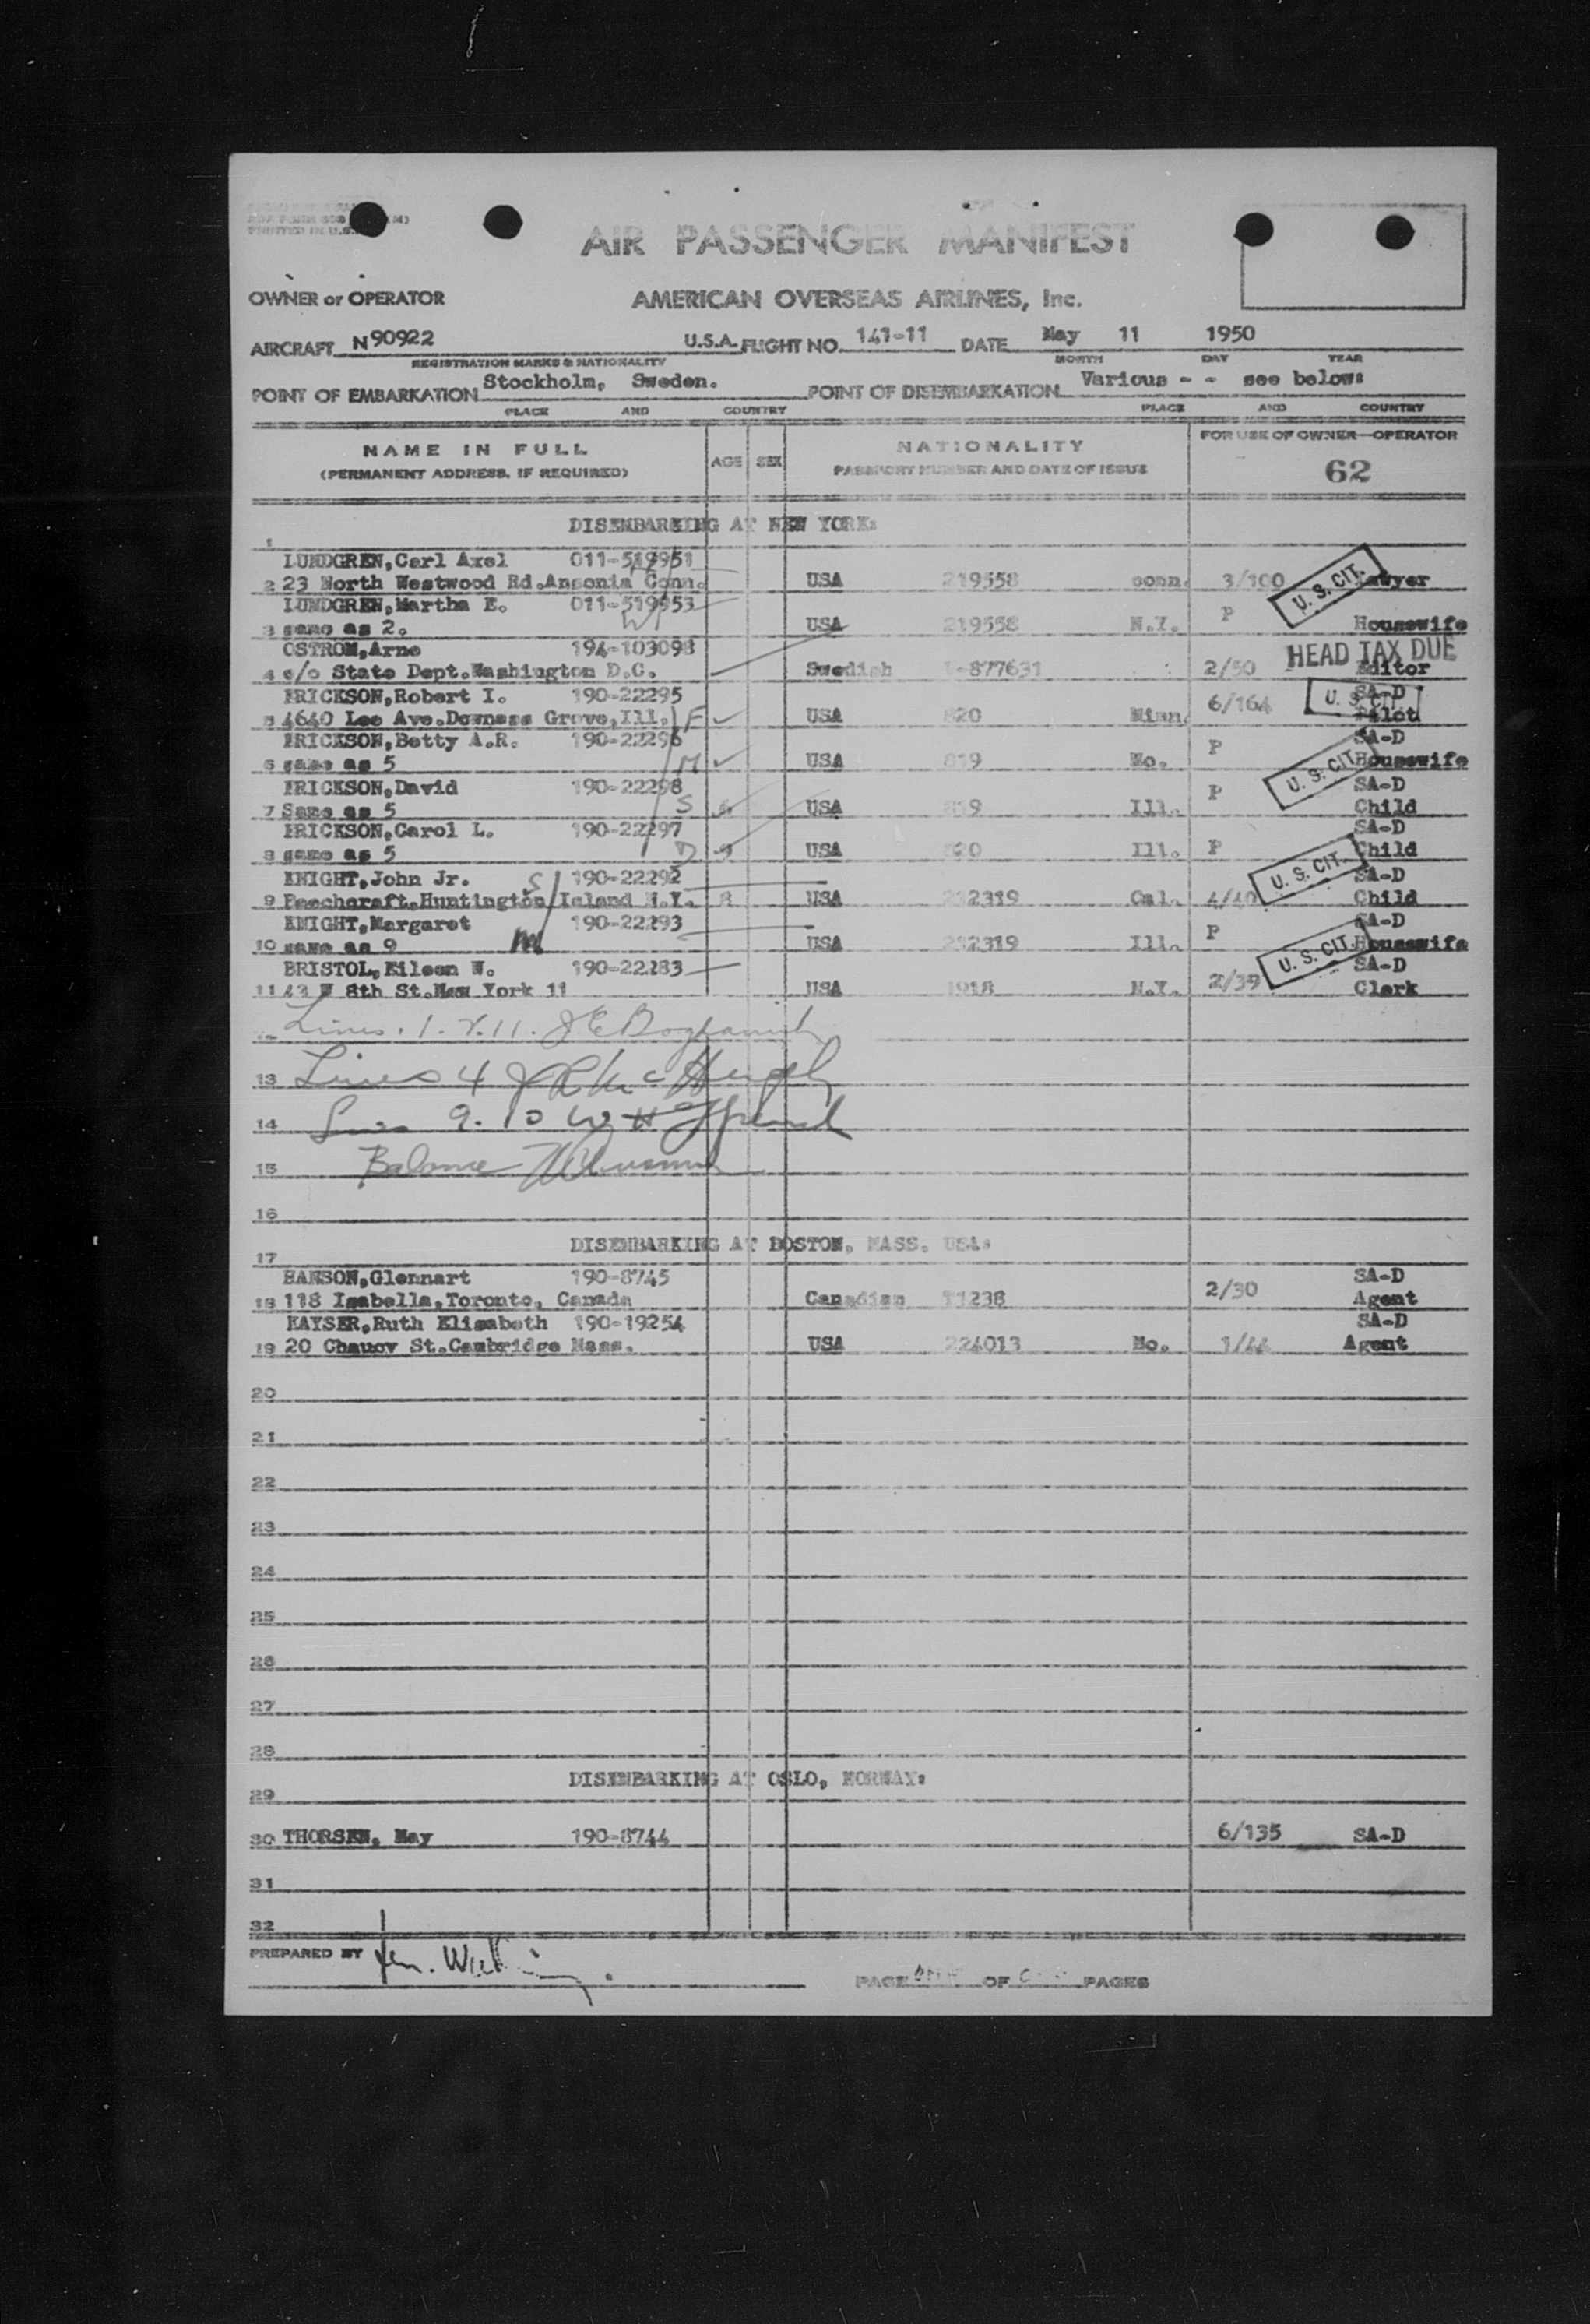 PRINTED IN U.S.
AIR PASSENGER MANIFEST
OWNER or OPERATOR AMERICAN OVERSEAS AIRLINES, Inc.
AIRCRAFT N90922 U.S.A. FLIGHT NO. 141-11 DATE May 11 1950
REGISTRATION MARKS & NATIONALITY MONTH DAY YEAR
POINT OF EMBARKATION Stockholm, Sweden. POINT OF DISEMBARKATION Various - - see below:
PLACE AND COUNTRY PLACE AND COUNTRY
NAME IN FULL AGE SEX NATIONALITY FOR USE OF OWNER—OPERATOR
(PERMANENT ADDRESS, IF REQUIRED) PASSPORT NUMBER AND DATE OF ISSUE 62
DISEMBARKING AT NEW YORK:
1
LUNDGREN, Carl Axel 011-519951
2 23 North Westwood Rd. Ansonia Conn. USA 219558 conn. 3/100 Lawyer U. S. CIT.
LUNDGREN, Martha E. 011-519953 W
3 same as 2. USA 219558 N.Y. P Housewife
OSTROM, Arne 194-103098 HEAD TAX DUE
4 c/o State Dept. Washington D.C. Swedish -877631 2/50 Editor
ERICKSON, Robert I. 190-22295 SA-D
5 4640 Lee Ave. Downess Grove, Ill. F USA 820 Minn. 6/164 Pilot U. S. CIT.
ERICKSON, Betty A.R. 190-22296 SA-D
6 same as 5 M USA 819 Mo. P Housewife U. S. CIT.
ERICKSON, David 190-22298 SA-D
7 Same as 5 S 6 USA 819 Ill. P Child
ERICKSON, Carol L. 190-22297 SA-D
8 same as 5 D USA 820 Ill. P Child U. S. CIT.
KNIGHT, John Jr. S 190-22292 SA-D
9 Beechcraft, Huntington Island N.Y. 8 USA 232319 Cal. 4/40 Child
KNIGHT, Margaret 190-22293 SA-D
10 same as 9 M USA 232319 Ill. P Housewife U. S. CIT.
BRISTOL, Eileen W. 190-22283 SA-D
11 43 W 8th St. New York 11 USA 1918 N.Y. 2/39 Clerk
Lines. 1. 2. 11.
13 Lines 4
14 9. 10
15 Balance
16
DISEMBARKING AT BOSTON, MASS. USA:
17
HANSON, Glennart 190-8745 SA-D
18 118 Isabella, Toronto, Canada Canadian 11238 2/30 Agent
KAYSER, Ruth Elisabeth 190-19254 SA-D
19 20 Chauov St. Cambridge Mass. USA 224013 Mo. 1/44 Agent
20
21
22
23
24
25
26
27
28
DISEMBARKING AT OSLO, NORWAY:
29
30 THORSEN, May 190-8744 6/135 SA-D
31
32
PREPARED BY
PAGE OF PAGES